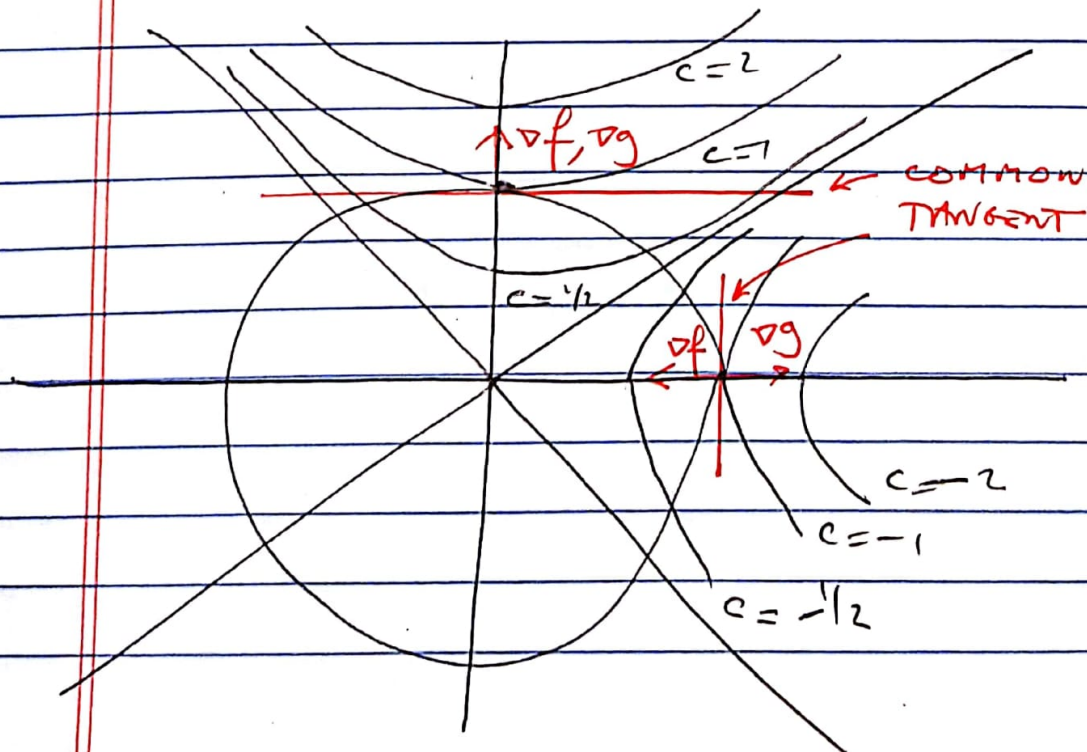 c = 2
∇f, ∇g
c = 1
COMMON
TANGENT
c = 1/2
∇f
∇g
c = -2
c = -1
c = -1/2